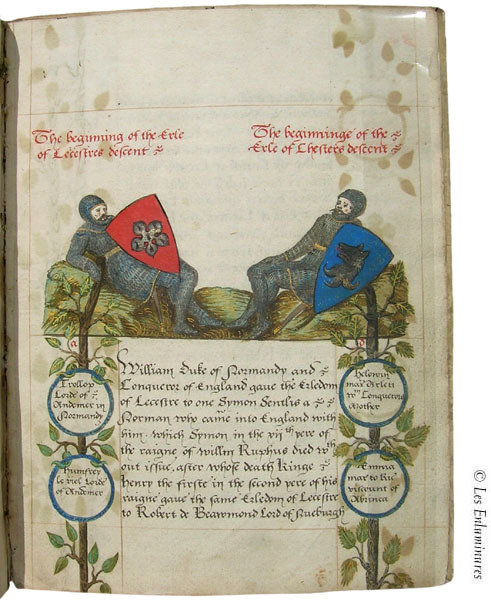 The beginning of the Erle
of Lecestres descent
The beginninge of the
Erle of Chesters descent
a
William Duke of Normandy and
Conqueror of England gaue the Erledom
of Lecestre to one Symon Sentlis a
Norman who came into England with
him. which Symon in the vijth yere of
the raigne of Willm Ruphus died wth
out issue, after whose death Kinge
henry the firste in the second yere of his
raigne gaue the same Erledom of Lecestre
to Robert de Beawmond Lord of
Lord of
Andemer in
Normandy
humfrey
le viel Lorde
of Andemer
mar
Conquerors
Mother
Emma
mar to Ric
viscount of
Abrinca
© Les Enluminures